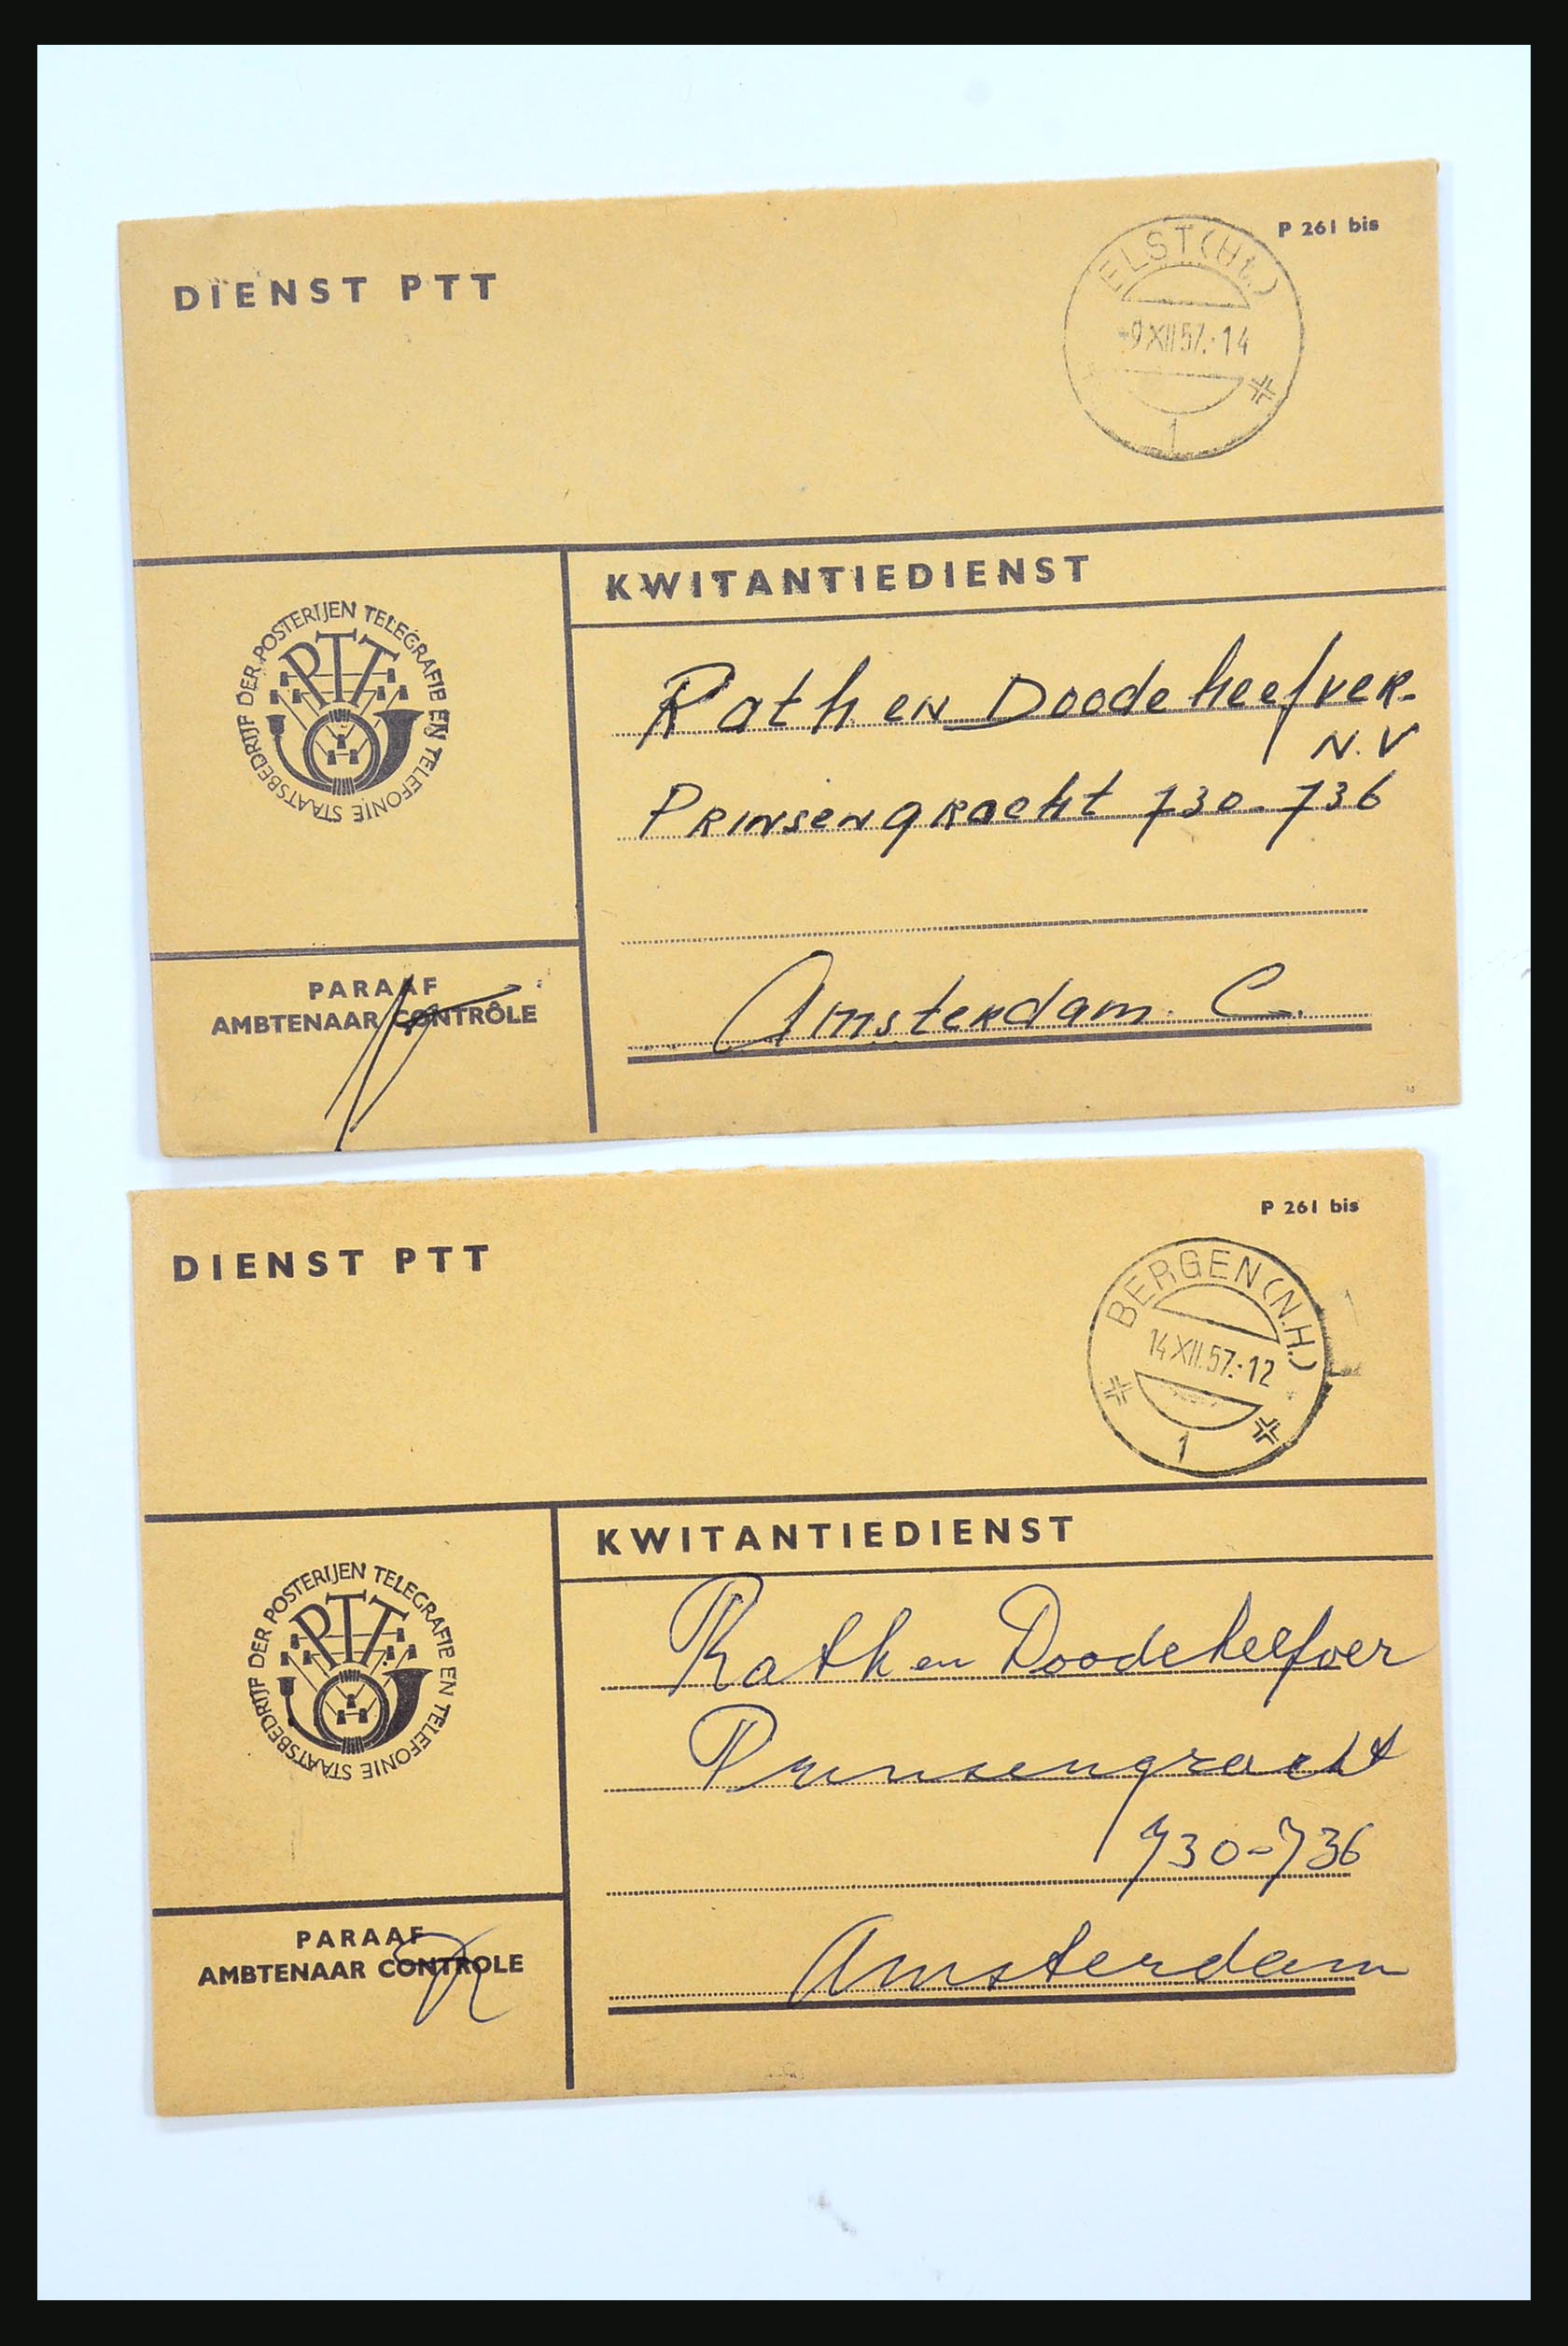 P 261 bis
DIENST PTT
ELST (Ut.)
-9 XII 57.-14
1
KWITANTIEDIENST
STAATSBEDRIJF DER POSTERIJEN TELEGRAFIE EN TELEFONIE
PTT
Rath en Doodeheefver.
N.V
Prinsengracht 730-736
PARAAF
AMBTENAAR CONTRÔLE
Amsterdam. C.
P 261 bis
DIENST PTT
BERGEN (N.H.)
14 XII.57.-12
1
KWITANTIEDIENST
STAATSBEDRIJF DER POSTERIJEN TELEGRAFIE EN TELEFONIE
PTT
Rath en Doodeheefver
Prinsengracht
730-736
PARAAF
AMBTENAAR CONTROLE
Amsterdam